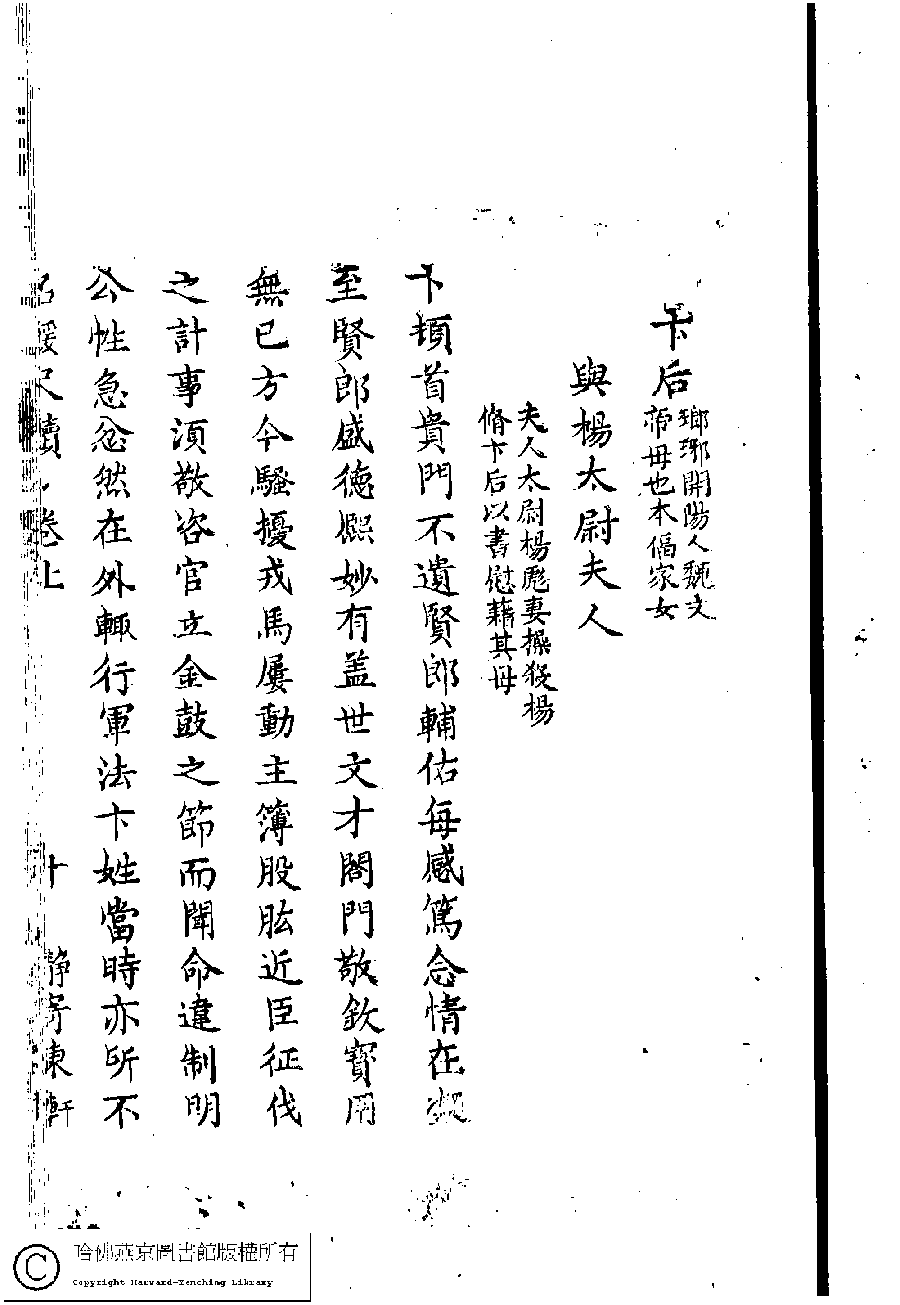 卞后
瑯琊開陽人魏文
帝母也本倡家女
與楊太尉夫人
夫人太尉楊彪妻操殺楊
脩卞后以書慰藉其母
卞頓首貴門不遺賢郎輔佑每感篤念情在凝
至賢郎盛德熙妙有盖世文才閤門敬欽寳用
無已方今騷擾戎馬屢動主簿股肱近臣征伐
之計事湏敬咨官立金鼓之節而聞命違制明
公性急忿然在外輙行軍法卞姓當時亦所不
名媛尺牘 卷上
十
靜寄東軒
哈佛燕京圖書館版權所有
Copyright Harvard-Yenching Library